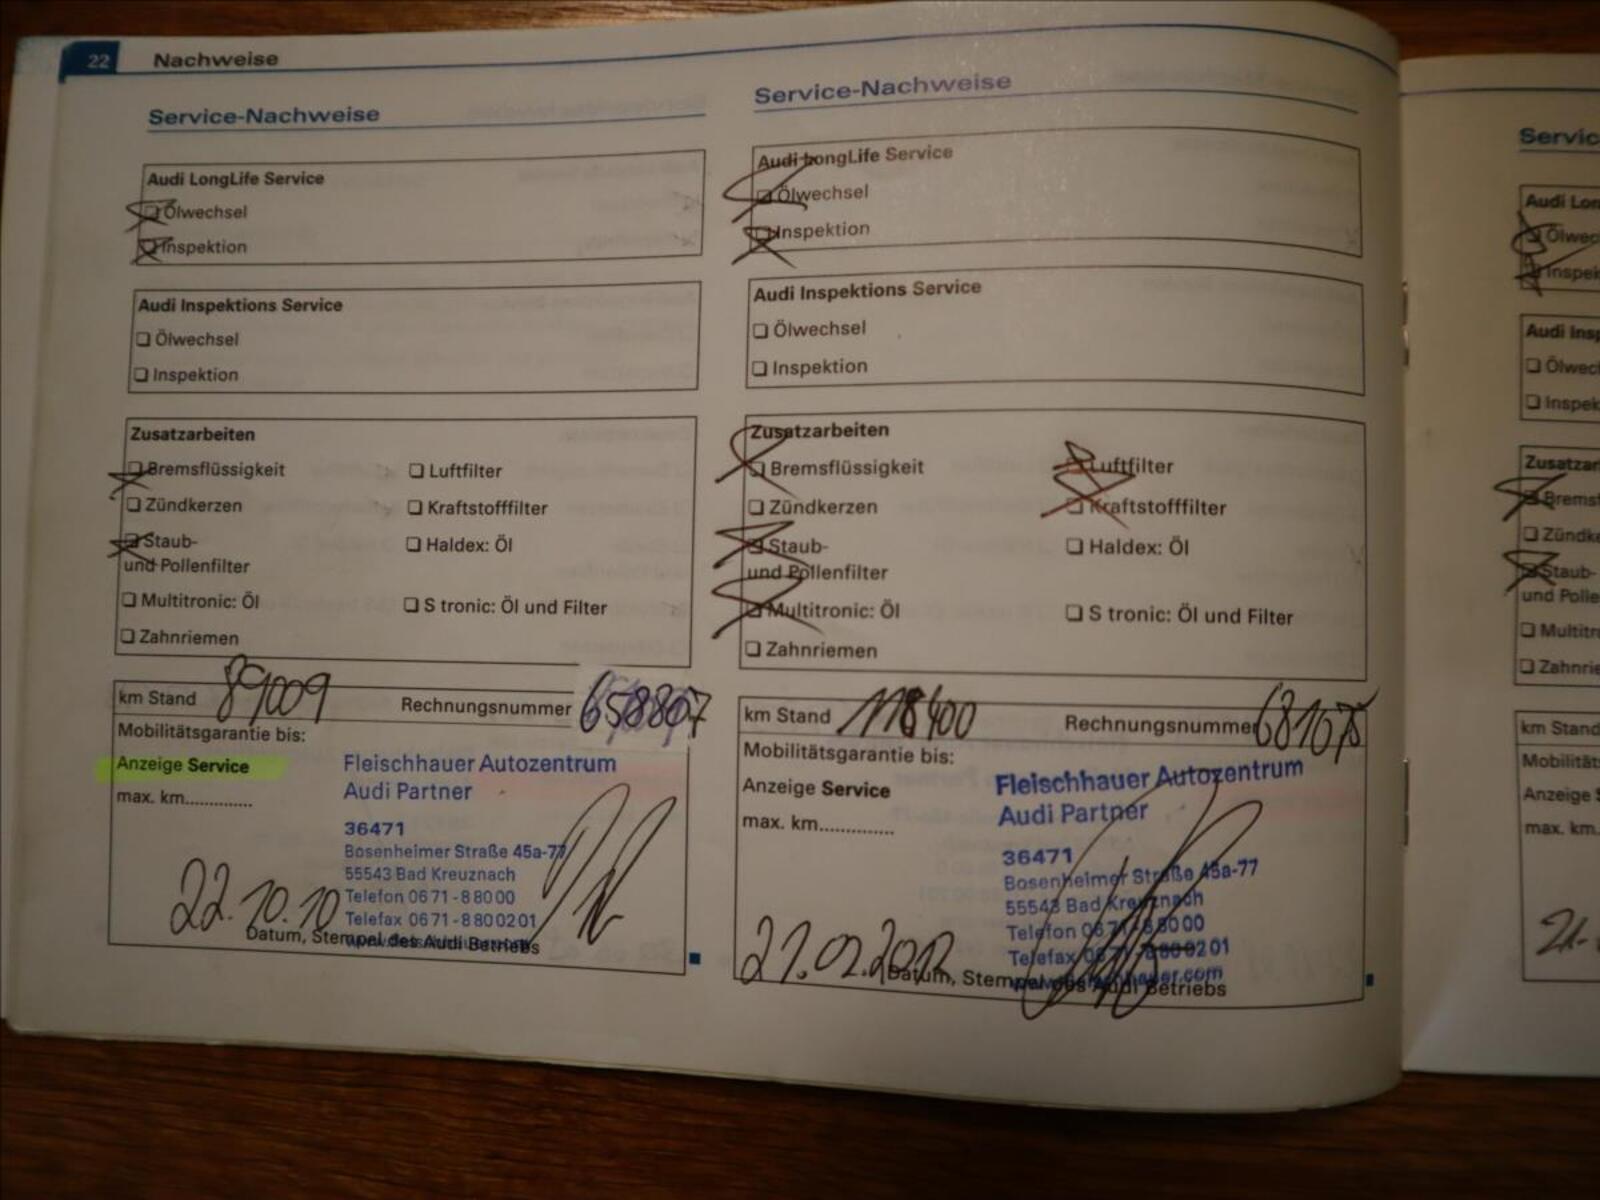 22 Nachweise
Service-Nachweise
Audi LongLife Service
Ölwechsel
Inspektion
Audi Inspektions Service
Ölwechsel
Inspektion
Zusatzarbeiten
Bremsflüssigkeit Luftfilter
Zündkerzen Kraftstofffilter
Staub- Haldex: Öl
und Pollenfilter
Multitronic: Öl S tronic: Öl und Filter
Zahnriemen
km Stand 89009 Rechnungsnummer 658807
Mobilitätsgarantie bis:
Anzeige Service
max. km.............
Fleischhauer Autozentrum
Audi Partner
36471
Bosenheimer Straße 45a-77
55543 Bad Kreuznach
Telefon 06 71 - 8 80 00
Telefax 06 71 - 8 80 02 01
22.10.10
Datum, Stempel des Audi Betriebs
Service-Nachweise
Audi LongLife Service
Ölwechsel
Inspektion
Audi Inspektions Service
Ölwechsel
Inspektion
Zusatzarbeiten
Bremsflüssigkeit Luftfilter
Zündkerzen Kraftstofffilter
Staub- Haldex: Öl
und Pollenfilter
Multitronic: Öl S tronic: Öl und Filter
Zahnriemen
km Stand 118400 Rechnungsnummer 681075
Mobilitätsgarantie bis:
Anzeige Service
max. km..............
Fleischhauer Autozentrum
Audi Partner
36471
Bosenheimer Straße 45a-77
55543 Bad Kreuznach
Telefon 06 71 - 8 80 00
Telefax 06 71 - 8 80 02 01
www.fleischhauer.com
21.02.2012
Datum, Stempel des Audi Betriebs
Servic
Audi Lon
Ölwec
Inspek
Audi Insp
Ölwec
Inspek
Zusatzar
Bremsf
Zündke
Staub-
und Polle
Multitr
Zahnrie
km Stand
Mobilität
Anzeige S
max. km.
21.